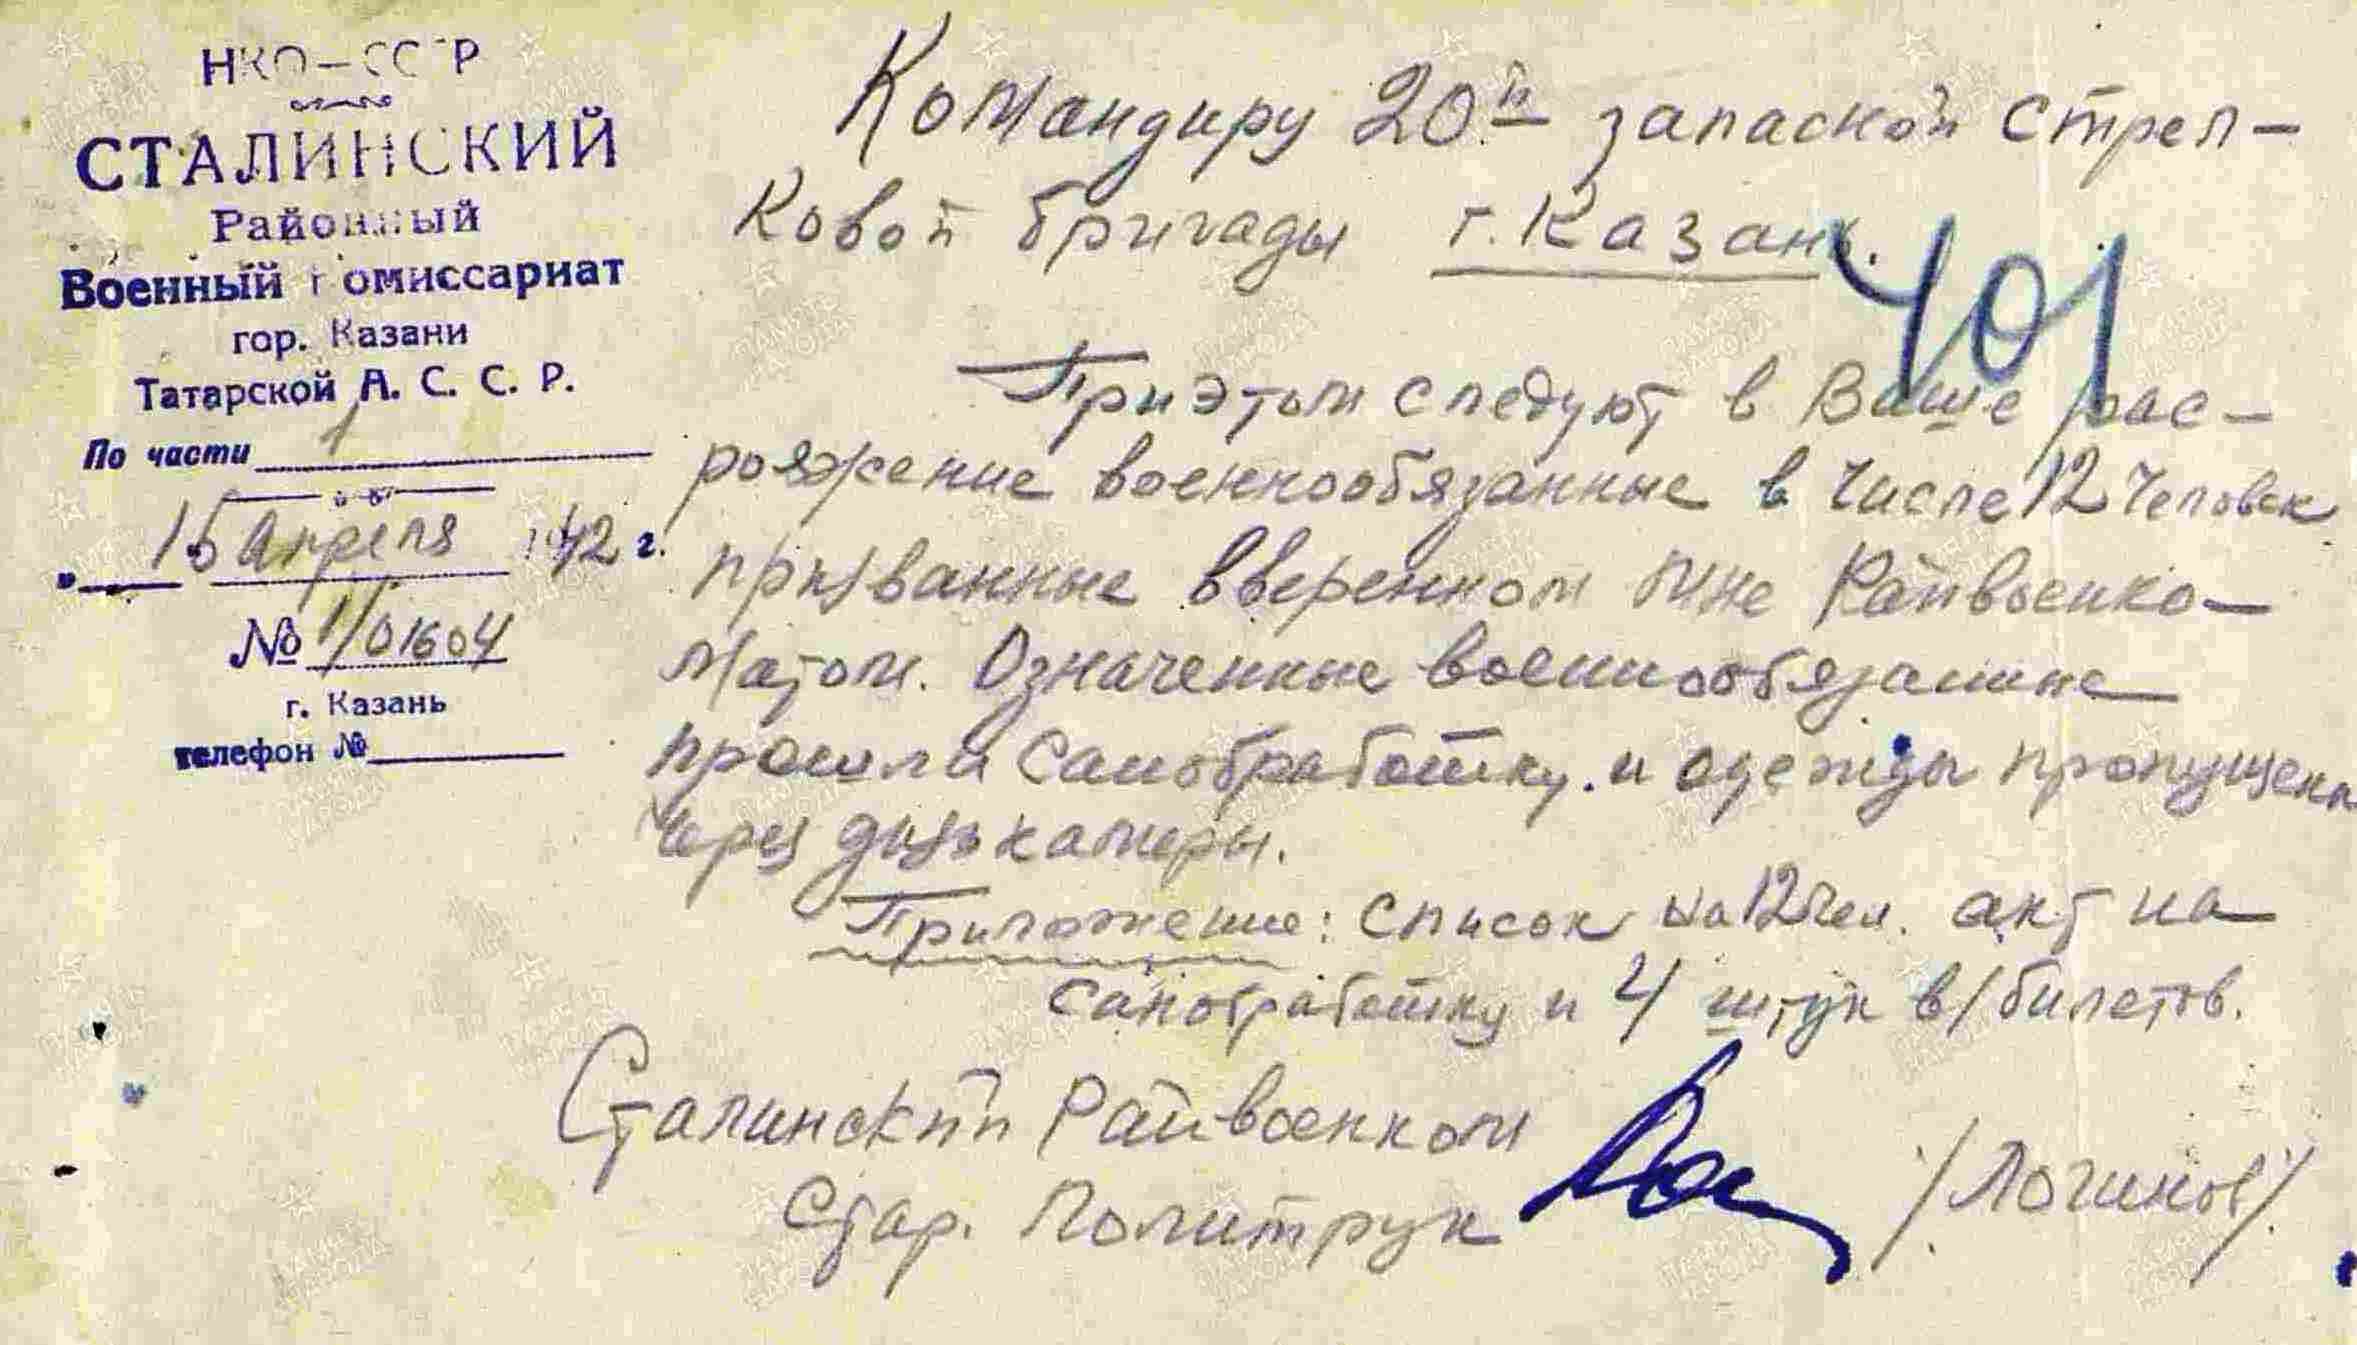 НКО–СССР
СТАЛИНСКИЙ
Районный
Военный комиссариат
гор. Казани
Татарской А. С. С. Р.
По части 1
15 апреля 1942 г.
№ 1/01604
г. Казань
телефон №
Командиру 20й запасной стрел–
ковой бригады г. Казань.
401
При этом следуют в Ваше рас–
ряжение военнообязанные в числе 12 человек
призванные вверенном мне Райвоенко–
матом. Означенные военнообязанные
прошли санобработку. и одежды пропущены
через дизькамеры.
Приложение: список на 12 чел. акт на
санобработку и 4 штук в/билетов.
Сталинский Райвоенком
Стар. Политрук /Логинов/.
ПАМЯТЬ НАРОДА